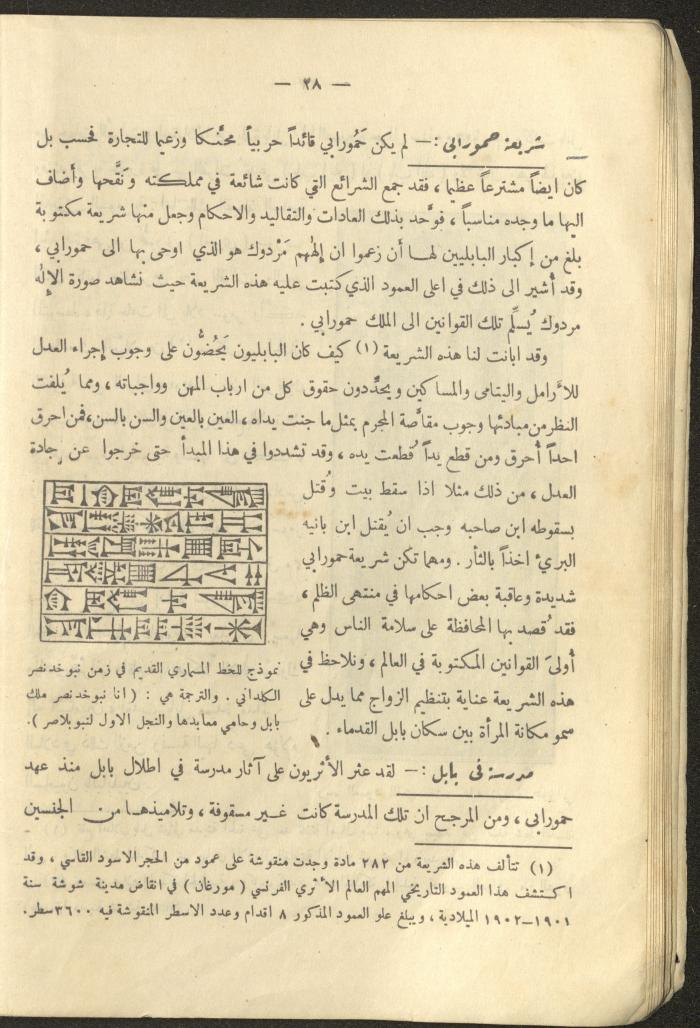 — ٢٨ —
شريعة حمورابي : — لم يكن حَمُورابي قائداً حربياً محنَّكا وزعيما للتجارة فحسب بل
كان ايضاً مشترعاً عظيما ، فقد جمع الشرائع التي كانت شائعة في مملكته وَنَقَّحها وأضاف
اليها ما وجده مناسباً ، فوحَّد بذلك العادات والتقاليد والاحكام وجعل منها شريعة مكتوبة
بلغ من إكبار البابليين لهـا أن زعموا ان إلٰههم مَرْدوك هو الذي اوحى بها الى حمورابي ،
وقد أُشير الى ذلك في اعلى العمود الذي كتبت عليه هذه الشريعة حيث نشاهد صورة الإلٰه
مردوك يُسلِّم تلك القوانين الى الملك حمورابي .
وقد ابانت لنا هذه الشريعة (١) كيف كان البابليون يَحُضُّون على وجوب إجراء العدل
للأَرامل واليتامى والمساكين ويحدِّدون حقوق كل من ارباب المهن وواجباته ، ومما يُلفت
النظر من مبادئها وجوب مقاصَّة المجرم بمثل ما جنت يداه ، العين بالعين والسن بالسن، فمن احرق
احداً أُحرق ومن قطع يداً قُطعت يده ، وقد تشددوا في هذا المبدأ حتى خرجوا عن جادة
العدل ، من ذلك مثلا اذا سقط بيت وقُتل
بسقوطه ابن صاحبه وجب ان يُقتل ابن بانيه
البريء اخذاً بالثأر . ومهما تكن شريعة حمورابي
شديدة وعاقبة بعض احكامها في منتهى الظلم ،
فقد قُصد بها المحافظة على سلامة الناس وهي
أولىَ القوانين المكتوبة في العالم ، ونلاحظ في
هذه الشريعة عناية بتنظيم الزواج مما يدل على
سمو مكانة المرأة بين سكان بابل القدماء .
نموذج للخط المسماري القديم في زمن نبوخدنصر
الكلداني . والترجمة هي : ( انا نبوخدنصر ملك
بابل وحامي معابدها والنجل الاول لنبوبلاصر ) .
مدرسة في بابل : — لقد عثر الأثريون على آثار مدرسة في اطلال بابل منذ عهد
حمورابي ، ومن المرجح ان تلك المدرسة كانت غـير مسقوفة ، وتلاميذهـا من الجنسين
(١) تتألف هذه الشريعة من ٢٨٢ مادة وجدت منقوشة على عمود من الحجر الاسود القاسي ، وقد
اكـتشف هذا العمود التاريخي المهم العالم الأثري الفرنسي ( مورغان ) في انقاض مدينة شوشة سنة
١٩٠١–١٩٠٢ الميلادية ، ويبلغ علو العمود المذكور ٨ اقدام وعدد الاسطر المنقوشة فيه ٣٦٠٠ سطر.